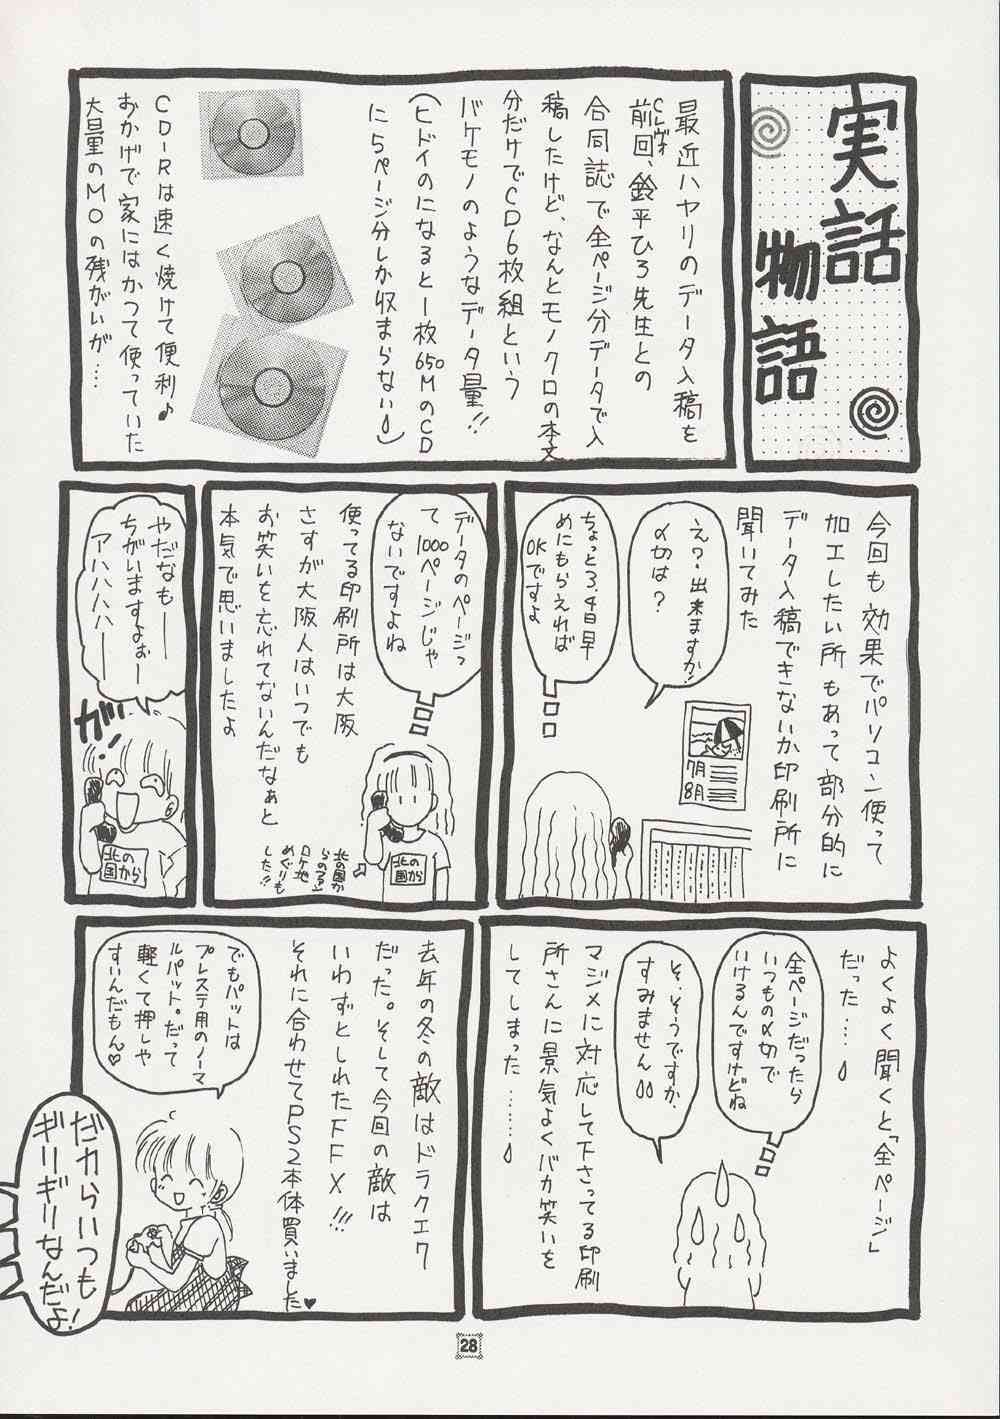 実話
物語
最近ハヤリのデータ入稿を
前回、鈴平ひろ先生との
合同誌で全ページ分データで入
稿したけど、なんとモノクロの本文
分だけでCD6枚組という
バケモノのようなデータ量!!
(ヒドイのになると一枚650MのCD
に5ページ分しか収まらない)
CD-Rは速く焼けて便利♪
おかげで家にはかつて使っていた
大量のMOの残がいが……
今回も効果でパソコン使って
加工したい所もあって部分的に
データ入稿できないか印刷所に
聞いてみた
え?出来ますか!
〆切は?
ちょっと3.4日早
めにもらえれば
OKですよ
7月
8月
データのページっ
て1000ページじゃ
ないですよね
使ってる印刷所は大阪
さすが大阪人はいつでも
お笑いを忘れてないんだなぁと
本気で思いましたよ
北の国か
らのファン
ロケ地
めぐりも
した!!
北の
国から
やだなもーー
ちがいますよぉー
アハハハハーー
ガバ!
北の
国から
よくよく聞くと「全ページ」
だった……
全ページだったら
いつもの〆切で
いけるんですけどね
そ、そうですか、
すみません
マジメに対応して下さってる印刷
所さんに景気よくバカ笑いを
してしまった………
去年の冬の敵はドラクエ7
だった。そして今回の敵は
いわずとしれたFFX!!!
それに合わせてPS2本体買いました♥
でもパットは
プレステ用のノーマ
ルパット。だって
軽くて押しや
すいんだもん♡
だからいつも
ギリギリなんだよ!
28